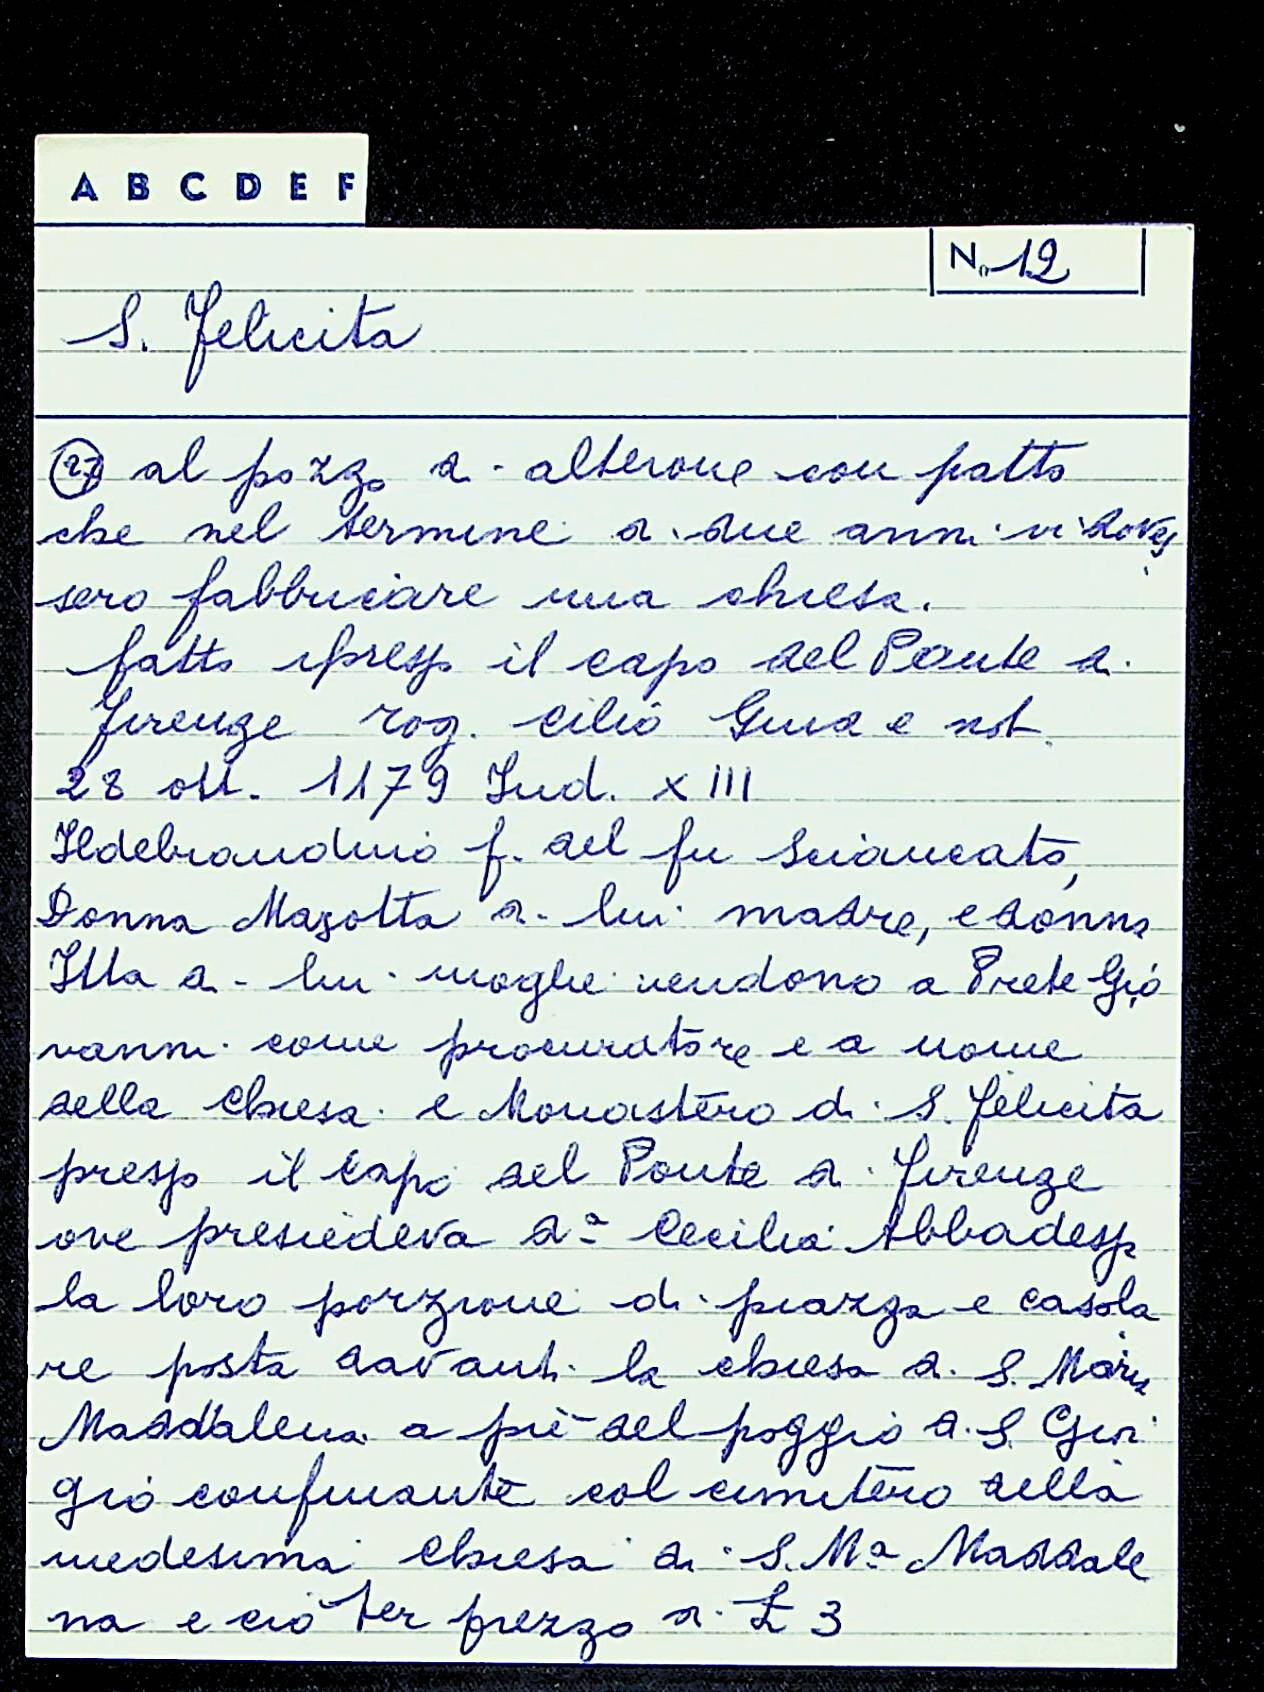 A B C D E F
N. 12
S. Felicita
27 al pozzo di alterone con patto
che nel termine di due anni vi doves
sero fabbricare una chiesa.
fatto presso il capo del Ponte di
Firenze rog. not.
28 ott. 1179 Ind. XIII
Ildebrandino f. del fu Sciancato,
Donna Mazotta di lui madre, e donna
Itta di lui moglie vendono a Prete Gio
vanni come procuratore e a nome
della Chiesa e Monastero di S. Felicita
presso il Capo del Ponte di Firenze
ove presiedeva da Cecilia Abbadessa
la loro porzione di piazza e casola
re posta davanti la chiesa di S. Maria
Maddalena a piè del poggio di S. Gior
gio confinante col cimitero della
medesima Chiesa di S. Ma Maddale
na e ciò per prezzo di £ 3